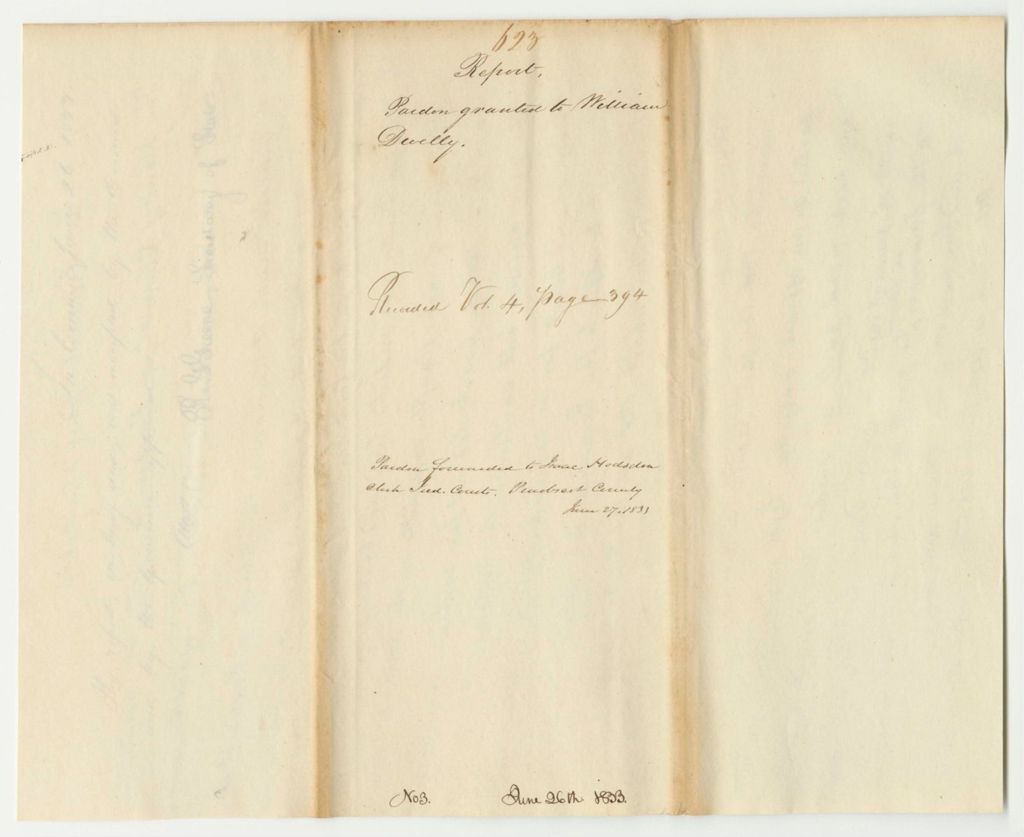 693
Report.
Pardon granted to William
Dwelly.
Recorded Vol. 4, page 394
Pardon forwarded to Isaac Hodsdon
Clerk Jud. Courts. Penobscot County
June 27, 1833
No 3. June 26th 1833.